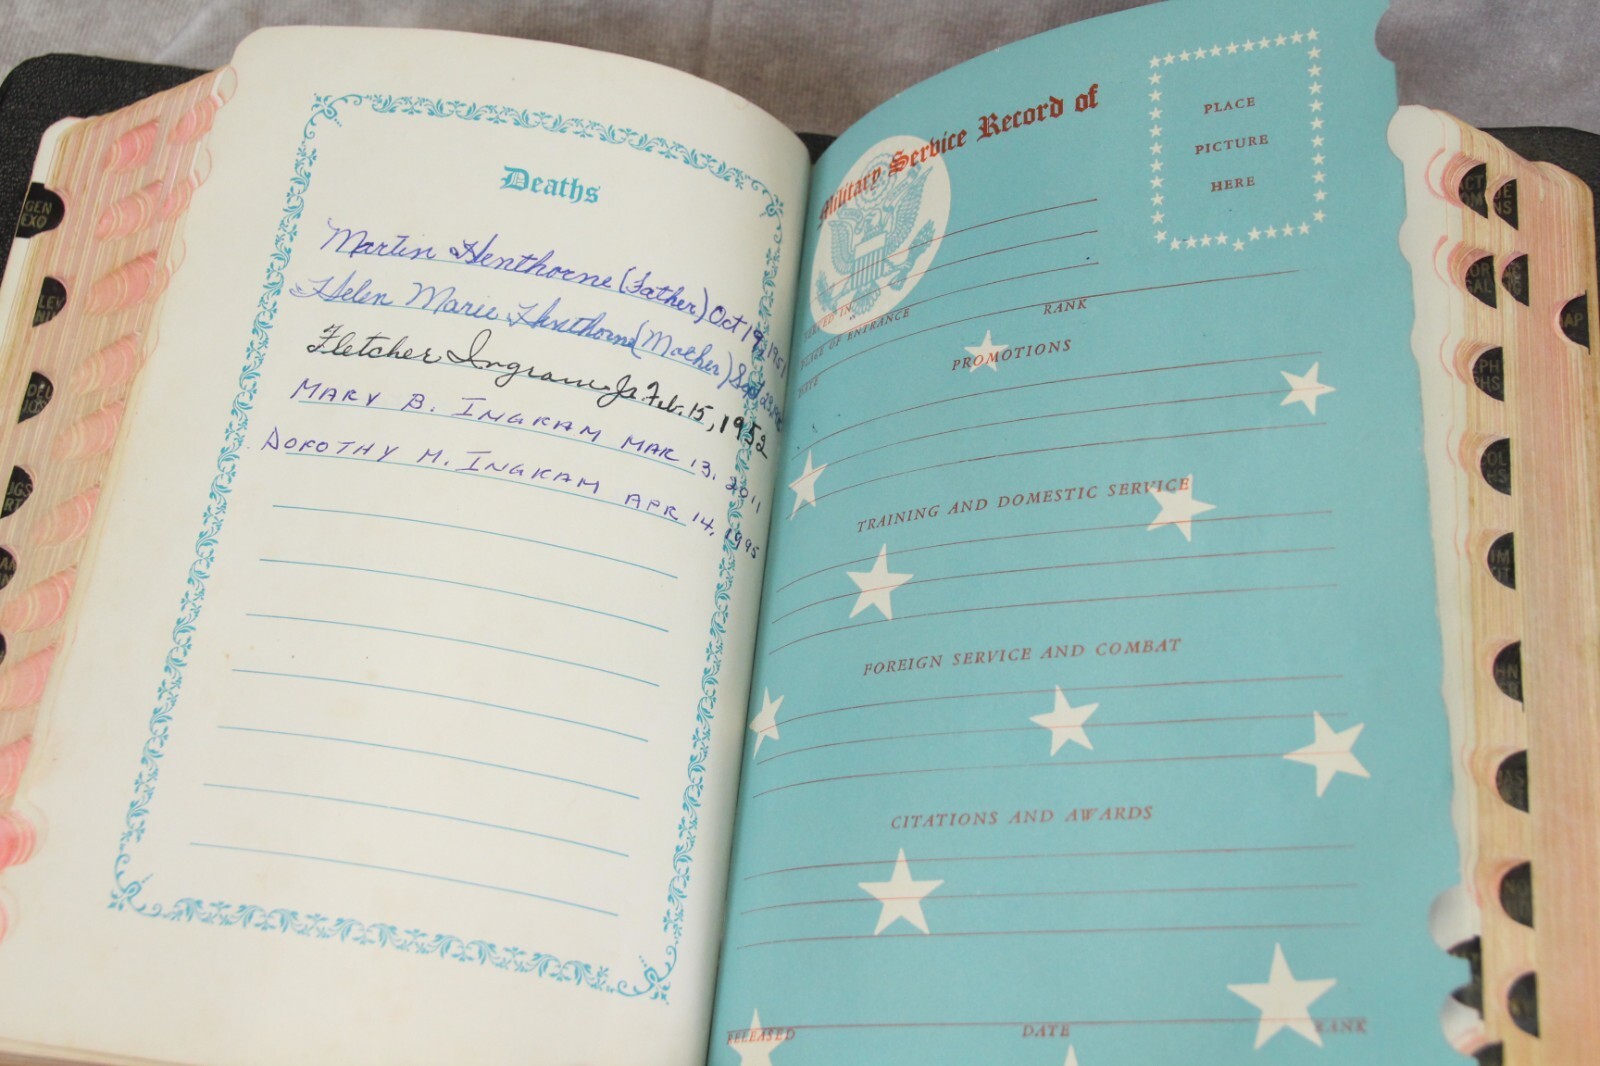 Deaths
Martin Henthorne (Father) Oct 19, 1951
Helen Marie Henthorne (Mother) Sep 23,
Fletcher Ingram Jr Feb. 15, 1952
MARY B. INGRAM MAR 13, 2011
DOROTHY M. INGRAM APR 14, 1995
Military Service Record of
PLACE
PICTURE
HERE
SERVED IN
PLACE OF ENTRANCE
RANK
DATE
PROMOTIONS
TRAINING AND DOMESTIC SERVICE
FOREIGN SERVICE AND COMBAT
CITATIONS AND AWARDS
RELEASED DATE RANK
GEN
EXO